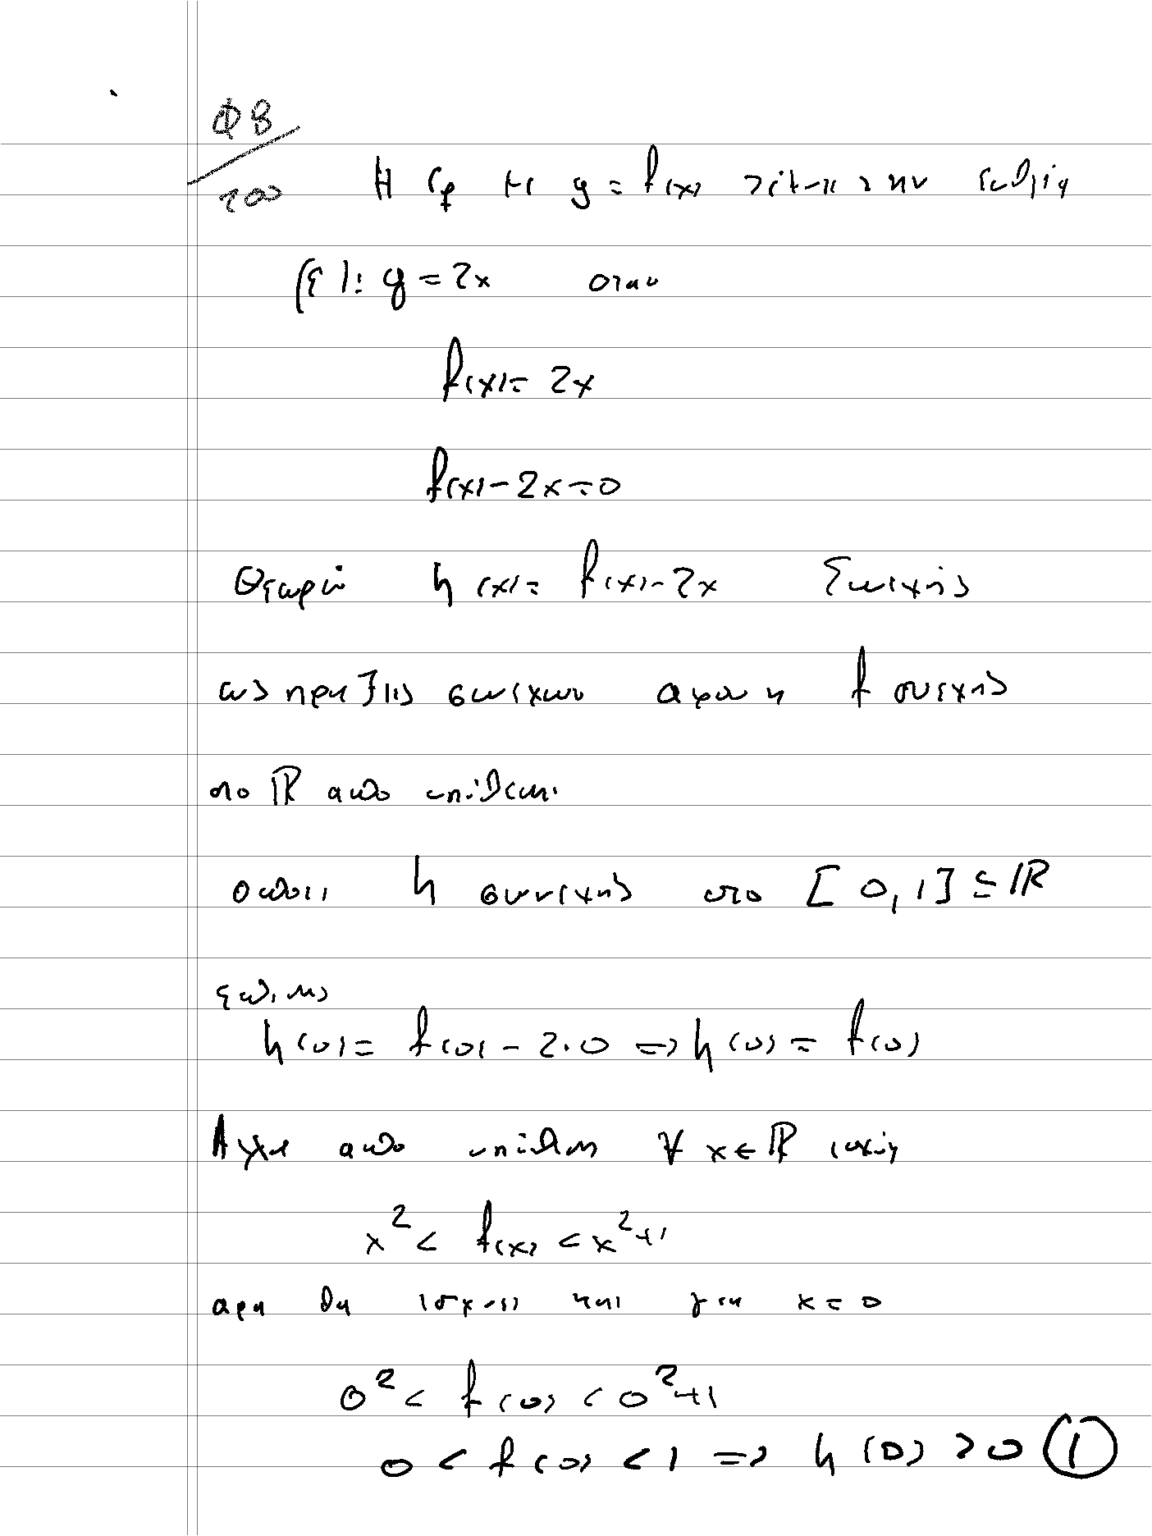 Φ8
200
Η Cf με y = f(x) τέμνει την ευθεία
(ε): y = 2x όταν
f(x) = 2x
f(x) - 2x = 0
Θεωρώ h(x) = f(x) - 2x Συνεχής
ως πράξεις συνεχών αφου η f συνεχής
στο ℝ από υπόθεση.
οπότε h συνεχής στο [0,1] ⊆ ℝ
επίσης
h(0) = f(0) - 2·0 ⇒ h(0) = f(0)
Αλλα από υπόθεση ∀ x ∈ ℝ ισχύει
x² < f(x) < x²+1
αρα θα ισχύει και για x = 0
0² < f(0) < 0²+1
0 < f(0) < 1 ⇒ h(0) > 0 ①